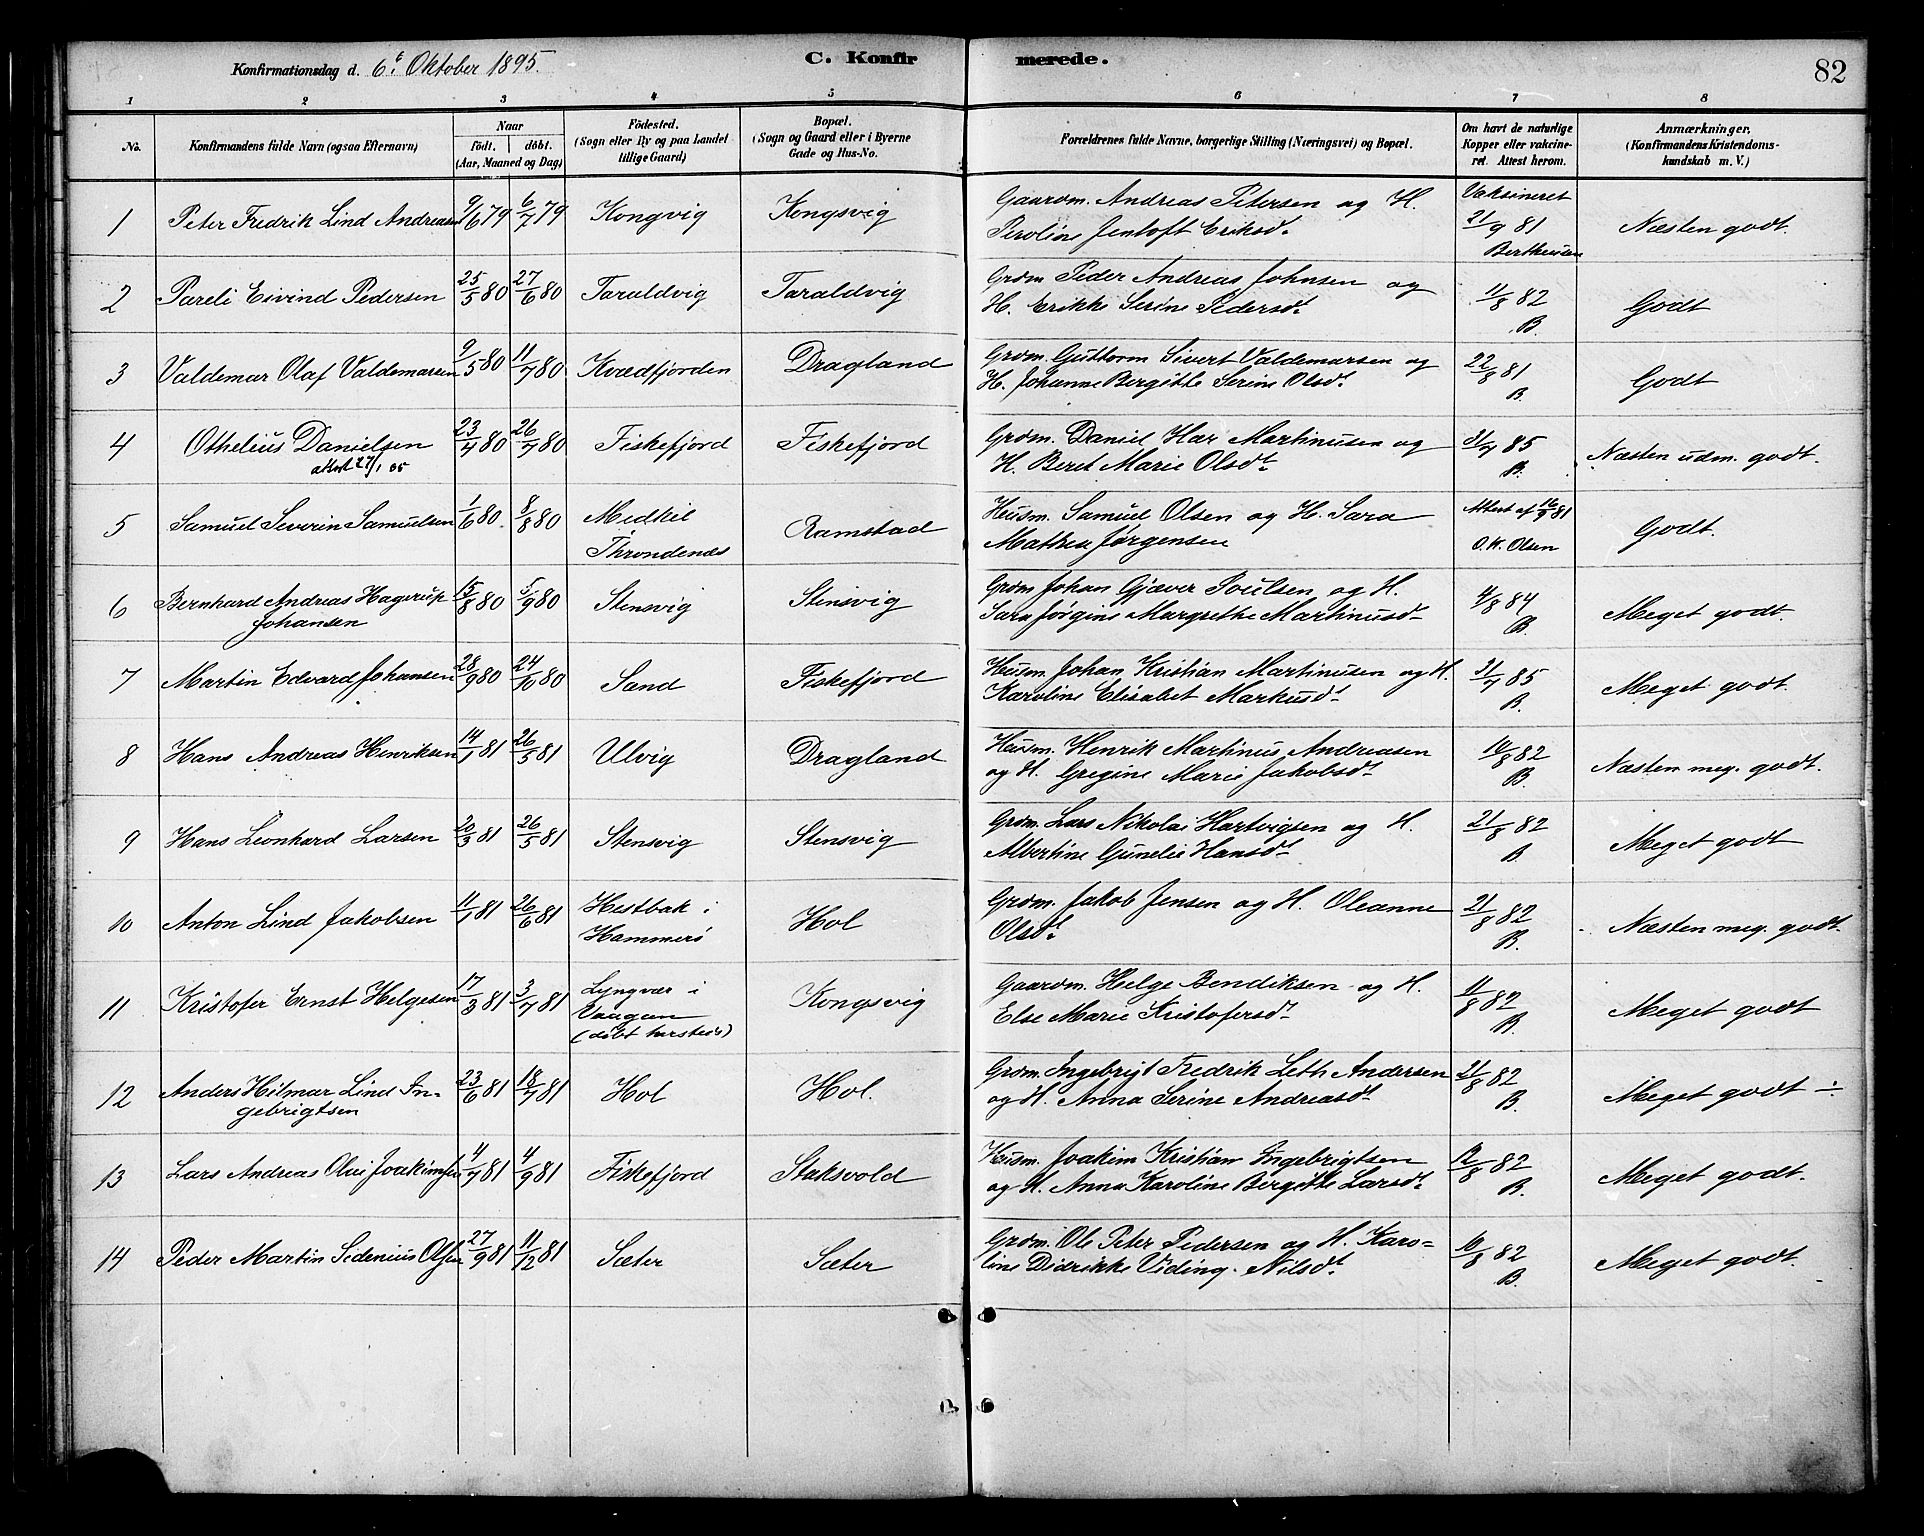 Konfirmationsdag d. 6te Oktober 1895. C. Konfirmerede. 82
1 2 3 4 5 6 7 8
No. Konfirmandens fulde Navn (ogsaa Efternavn) Naar født. døbt. (Aar, Maaned og Dag) Fødested. (Sogn eller By og paa Landet tillige Gaard) Bopæl. (Sogn og Gaard eller i Byerne Gade og Hus-No. Forældrenes fulde Navne, borgerlige Stilling (Næringsvei) og Bopæl. Om havt de naturlige Kopper eller vakcineret. Attest herom. Anmærkninger. (Konfirmandens Kristendomskundskab m. V.)
1 Peter Fredrik Lind Andreasen 9/6 79 6/7 79 Kongvig Kongsvig Gaardm. Andreas Petersen og H.
Peroline Jentoft Eriksd. Vaksineret 21/9 81 Bertheusen Næsten godt.
2 Pareli Eivind Pedersen 25/5 80 27/6 80 Taraldvig Taraldvig Grdm. Peder Andreas Johnsen og
H. Erikke Serine Pedersdt. 11/8 82 B. Godt
3 Valdemar Olaf Valdemarsen 9/5 80 11/7 80 Kvædfjorden Dragland Grdm. Guttorm Sivert Valdemarsen og
H. Johanne Bergitte Serine Olsdt. 22/8 81 B. Godt
4 Othelius Danielsen 23/4 80 26/7 80 Fiskefjord Fiskefjord Grdm. Daniel Har Martinusen og
attest 27/1 05 H. Beret Marie Olsdt. 31/7 85 B. Næsten udm. godt.
5 Samuel Severin Samuelsen 1/6 80. 8/8 80 Medkil
Throndenæs Ramstad Husm. Samuel Olsen og H. Sara
Mathea Jørgensen Attest af 16/9 81
O. K. Olsen Godt.
6 Bernhard Andreas Hagerup
Johansen 15/8 80 5/9 80 Stensvig Stensvig Grdm. Johan Gjæver Poulsen og H.
Sara Jørgine Margrethe Martinusd. 4/8 84 B. Meget godt.
7 Martin Edvard Johansen 28/9 80 24/10 80 Sand Fiskefjord Husm. Johan Kristian Martinusen og H.
Karoline Elisabet Markusdt. 31/7 85 B. Meget godt.
8 Hans Andreas Henriksen 14/1 81 26/5 81 Ulvig Dragland Husm. Henrik Martinus Andreasen
og H. Gregine Marie Jakobsdt. 14/8 82 B. Næsten meg. godt.
9 Hans Leonhard Larsen 20/3 81 26/5 81 Stensvig Stensvig Grdm. Lars Nikolai Hartvigsen og H.
Albertine Gunelie Hansdt. 21/8 82 B. Meget godt
10 Anton Lind Jakobsen 11/1 81 26/6 81 Hestbak i
Hammerø Hol Grdm. Jakob Jensen og H. Oleanne
Olsdt. 21/8 82 B. Næsten meg. godt.
11 Kristofer Ernst Helgesen 17/3 81 3/7 81 Lyngvær i
Vaagan
(døbt hersteds) Kongsvig Gaardm. Helge Bendiksen og H.
Else Marie Kristofersdt. 11/8 82 B. Meget godt
12 Anders Hilmar Lind In-
gebrigtsen 23/6 81 18/7 81 Hol Hol. Grdm. Ingebrigt Fredrik Leth Andersen
og H. Anna Serine Andreasdt. 21/8 82 B. Meget godt ÷
13 Lars Andreas Olai Joakimsen 4/7 81 4/9 81 Fiskefjord Staksvold Husm. Joakim Kristian Ingebrigtsen
og H. Anna Karoline Bergitte Larsdt. 12/8 82 B. Meget godt.
14 Peder Martin Sedenius Olsen 27/9 81 11/12 81 Sæter Sæter Grdm. Ole Peter Pedersen og H. Karo-
line Didrikke Viding Nilsdt. 10/8 82 B. Meget godt.